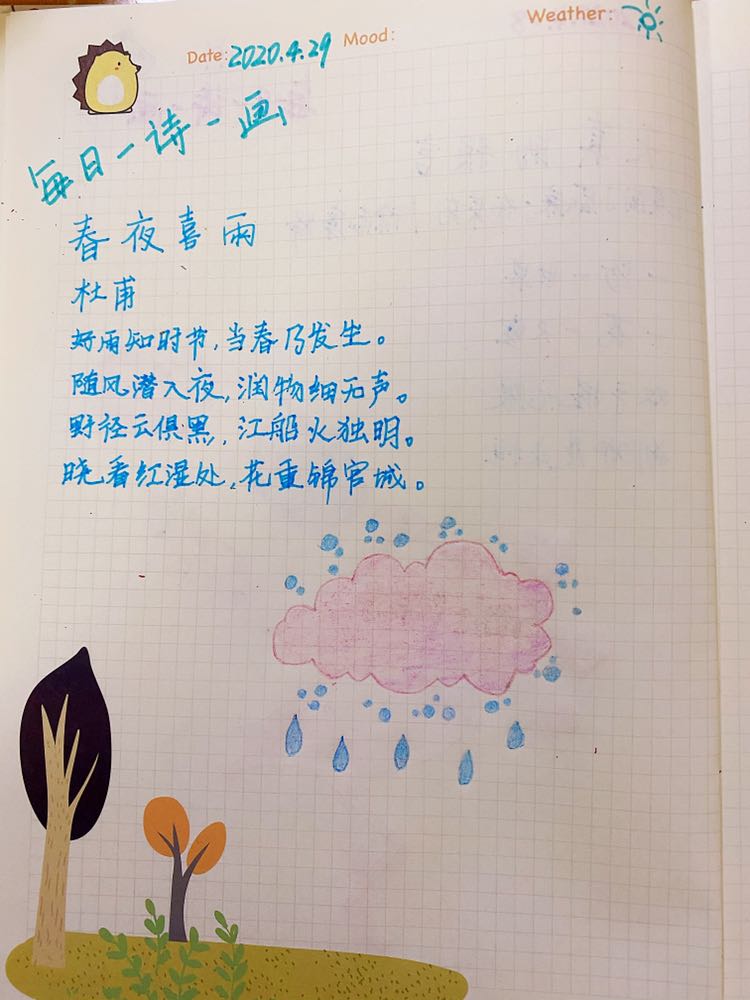 Date: 2020.4.29 Mood: Weather:
每日一诗一画
春夜喜雨
杜甫
好雨知时节,当春乃发生。
随风潜入夜,润物细无声。
野径云俱黑,江船火独明。
晓看红湿处,花重锦官城。